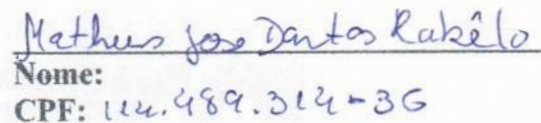 Matheus Jose Dantas Rabêlo
Nome:
CPF: 114.489.314-36